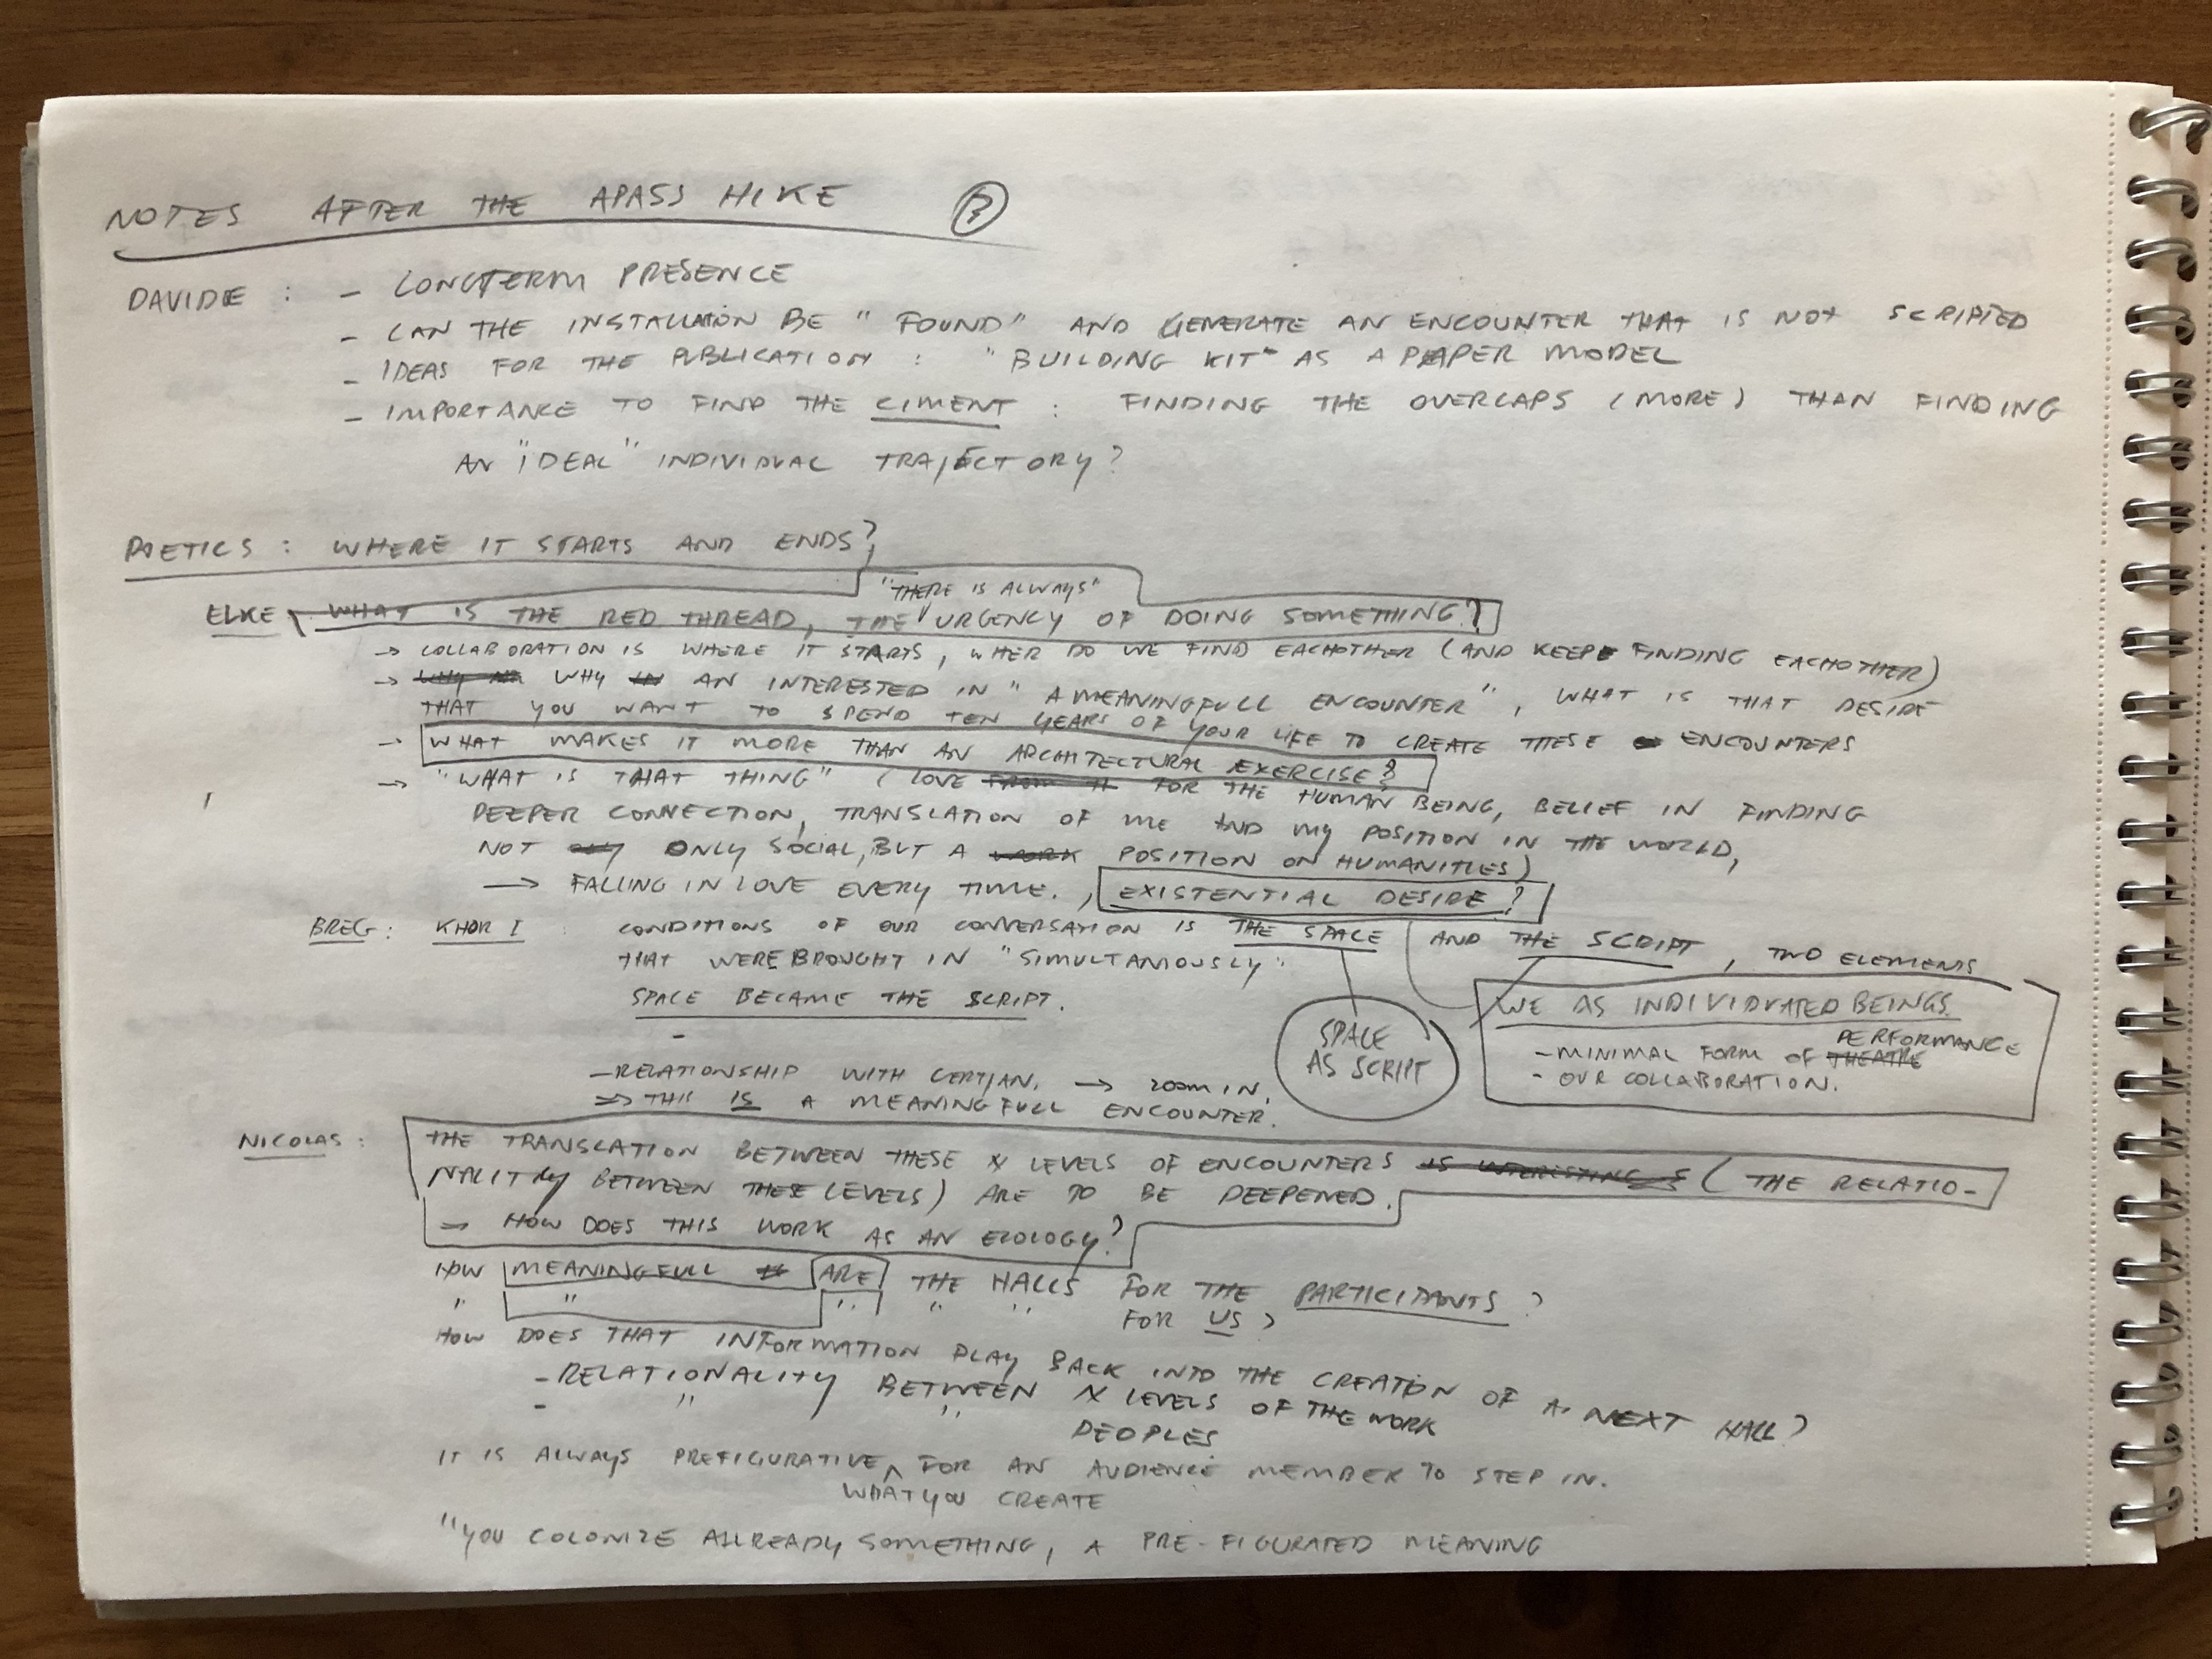 NOTES AFTER THE APASS HIKE
DAVIDE : - LONGTERM PRESENCE
- CAN THE INSTALLATION BE "FOUND" AND GENERATE AN ENCOUNTER THAT IS NOT SCRIPTED
- IDEAS FOR THE PUBLICATION : "BUILDING KIT" AS A PAPER MODEL
- IMPORTANCE TO FIND THE CIMENT : FINDING THE OVERLAPS (MORE) THAN FINDING
AN "IDEAL" INDIVIDUAL TRAJECTORY?
POETICS : WHERE IT STARTS AND ENDS?
"THERE IS ALWAYS"
ELKE WHAT IS THE RED THREAD, THE URGENCY OF DOING SOMETHING?
→ COLLABORATION IS WHERE IT STARTS, WHER DO WE FIND EACHOTHER (AND KEEP FINDING EACHOTHER)
→ WHY AN INTERESTED IN "A MEANINGFULL ENCOUNTER", WHAT IS THAT DESIRE
THAT YOU WANT TO SPEND TEN YEARS OF YOUR LIFE TO CREATE THESE ENCOUNTERS
→ WHAT MAKES IT MORE THAN AN ARCHITECTURAL EXERCISE?
→ "WHAT IS THAT THING" (LOVE FOR THE HUMAN BEING, BELIEF IN FINDING
DEEPER CONNECTION, TRANSLATION OF ME AND MY POSITION IN THE WORLD,
NOT ONLY SOCIAL, BUT A WORK POSITION ON HUMANITIES)
→ FALLING IN LOVE EVERY TIME. , EXISTENTIAL DESIRE?
BREG : KHOR I : CONDITIONS OF OUR CONVERSATION IS THE SPACE AND THE SCRIPT, TWO ELEMENTS
THAT WERE BROUGHT IN "SIMULTANIOUSLY".
SPACE BECAME THE SCRIPT.
-
SPACE
AS SCRIPT
WE AS INDIVIDUATED BEINGS.
- MINIMAL FORM OF THEATRE PERFORMANCE
- OUR COLLABORATION.
- RELATIONSHIP WITH CERTIAN. → ZOOM IN.
⇒ THIS IS A MEANINGFULL ENCOUNTER.
NICOLAS : THE TRANSLATION BETWEEN THESE X LEVELS OF ENCOUNTERS IS INTERESTING (THE RELATIO-
NALITY BETWEEN THESE LEVELS) ARE TO BE DEEPENED.
→ HOW DOES THIS WORK AS AN ECOLOGY?
HOW MEANINGFULL ARE THE HALLS FOR THE PARTICIPANTS?
" " " " " FOR US?
HOW DOES THAT INFORMATION PLAY BACK INTO THE CREATION OF A NEXT HALL?
- RELATIONALITY BETWEEN X LEVELS OF THE WORK
- " " PEOPLES
IT IS ALWAYS PREFIGURATIVE ^ FOR AN AUDIENCE MEMBER TO STEP IN.
WHAT YOU CREATE
"YOU COLONIZE ALLREADY SOMETHING, A PRE-FIGURATED MEANING